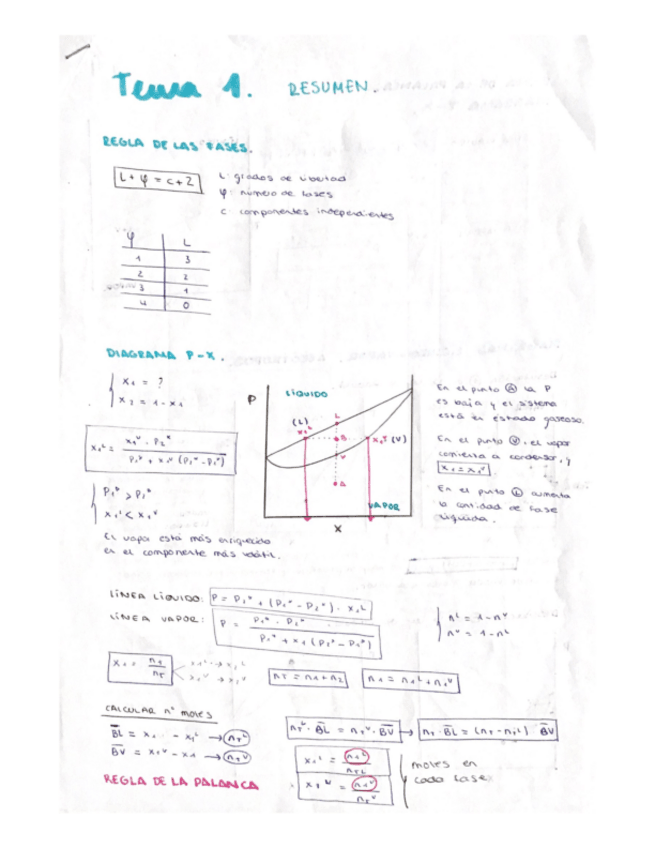 Tema 1. RESUMEN.
REGLA DE LAS FASES.
L + φ = c + 2
L: grados de libertad
φ: número de fases
c: componentes independientes
φ L
1 3
2 2
3 1
4 0
DIAGRAMA P-X.
x₁ = ?
x₂ = 1 - x₁
P₁* > P₂*
x₁ᴸ < x₁ⱽ
El vapor está más enriquecido
en el componente más volátil.
P
LÍQUIDO
(L)
L
x₁ᴸ
B
(V)
V
A
VAPOR
X
En el punto A la P
es baja y el sistema
está en estado gaseoso.
En el punto V, el vapor
comienza a condensar, y
x₁ = x₁ⱽ
En el punto L aumenta
la cantidad de fase
líquida.
LÍNEA LÍQUIDO: P = P₂* + (P₁* - P₂*) · x₁ᴸ
LÍNEA VAPOR: P =
nᴸ = 1 - nⱽ
nⱽ = 1 - nᴸ
x₁ = n₁ / nT
nT = n₁ + n₂
n₁ = n₁ᴸ + n₁ⱽ
CALCULAR nº MOLES
BL = x₁ - x₁ᴸ →
BV = x₁ⱽ - x₁ →
nTᴸ · BL = nTⱽ · BV
REGLA DE LA PALANCA
x₁ᴸ = n₁ᴸ / nTᴸ
x₁ⱽ = n₁ⱽ / nTⱽ
moles en
cada fase